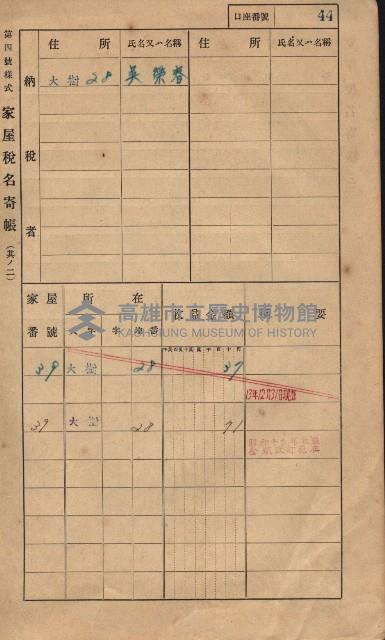 口座番號 44
第四號樣式 家屋稅名寄帳 (其ノ二)
納稅者
住所 氏名又ハ名稱 住所 氏名又ハ名稱
大樹 28 吳榮春
家屋番號 所在 賃貸價額 摘要
大字 字 地番
39 大樹 28 37
13年12月31日現在
39 大樹 28 71
高雄市立歷史博物館
KAOHSIUNG MUSEUM OF HISTORY